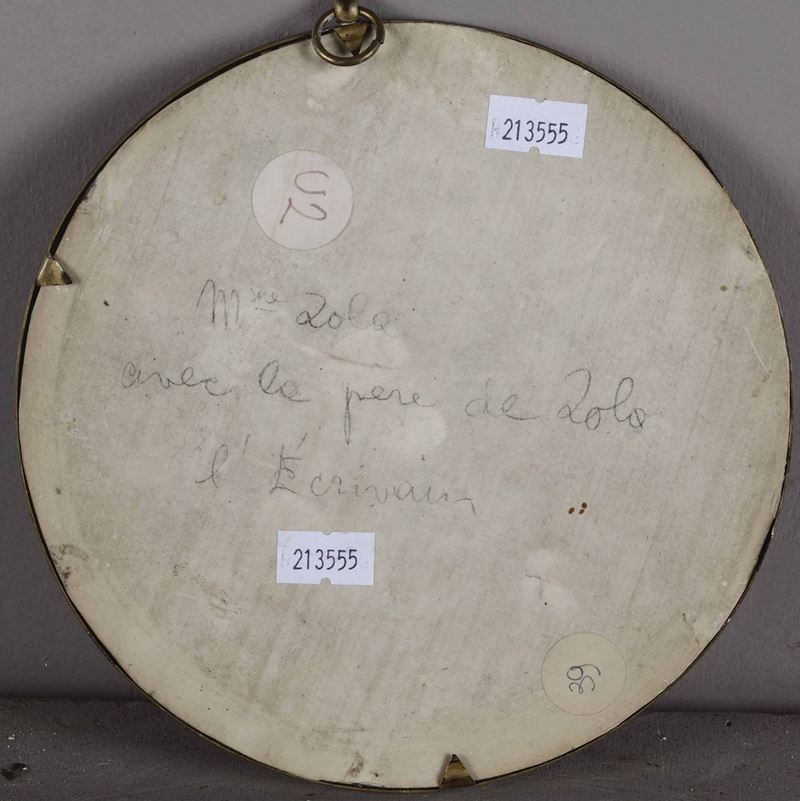 213555
Mme Zola
avec le pere de Zola
l'Écrivain
213555